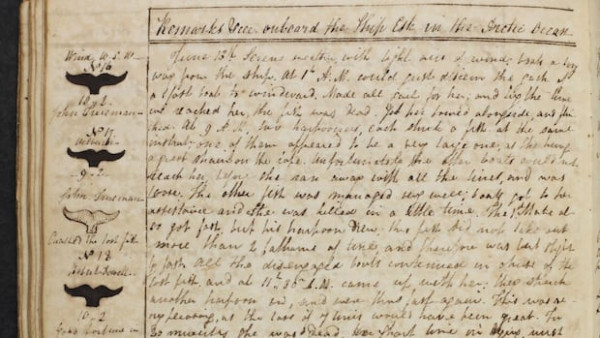 Remarks &ce onboard the Ship Esk in the Arctic Ocean
Wind W.S.W.
No 16
10 - 2
John
No 17
9 - 2
John
the lost fish
No 18
10 - 2
June 13th Serene weather, with light airs of wind; boats a long
way from the ship. At 1 A.M. could just discern the jack of
a fast boat to windward. Made all sail for her; and by the time
we reached her, the fish was dead. Got her towed alongside, and
At 9 A.M. two harpooners, each struck a fish at the same
instant; one of them appeared to be a very large one, as she hung
a great strain on the rope. Unfortunately the other boats could not
reach her, before she ran away with all the lines, and was
loose. The other fish was managed very well; boats got to her
assistance and she was killed in a little time. The
got fast, but his harpoon drew; this fish did not take out
more than 2 fathoms of line and therefore was but slight
fast. All the disengaged boats continued in chase of the
lost fish and at 11h 35 A.M. came up with her; they struck
another harpoon in, and were thus fast again. This was
as the loss of lines would have been great. In
30 minutes she was dead. line in